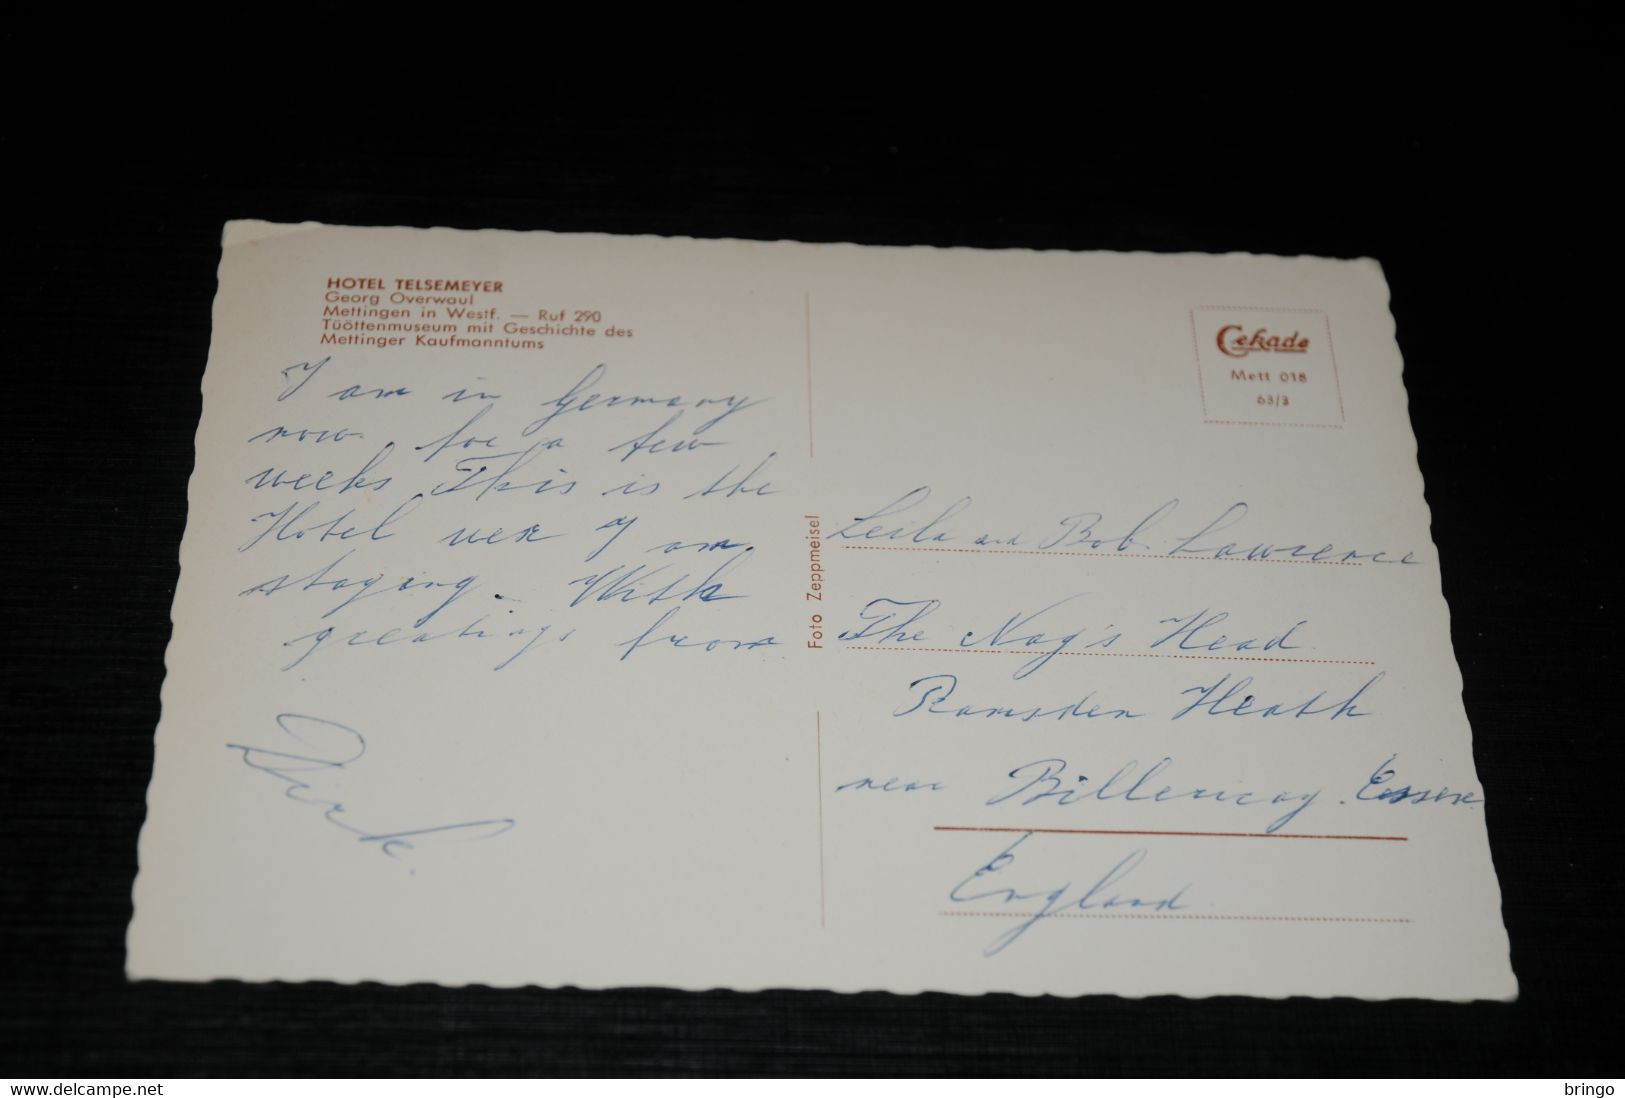 HOTEL TELSEMEYER
Georg Overwaul
Mettingen in Westf. — Ruf 290
Tüöttenmuseum mit Geschichte des
Mettinger Kaufmanntums
I am in Germany
now for a few
weeks This is the
Hotel wer I am
staying. With
greatings from
Dirk.
Foto Zeppmeisel
Cekade
Mett 018
63/3
Leila and Bob Lawrence
The Nag's Head
Ramsden Heath
near Billericay. Essex
England
delcampe.net
bringo